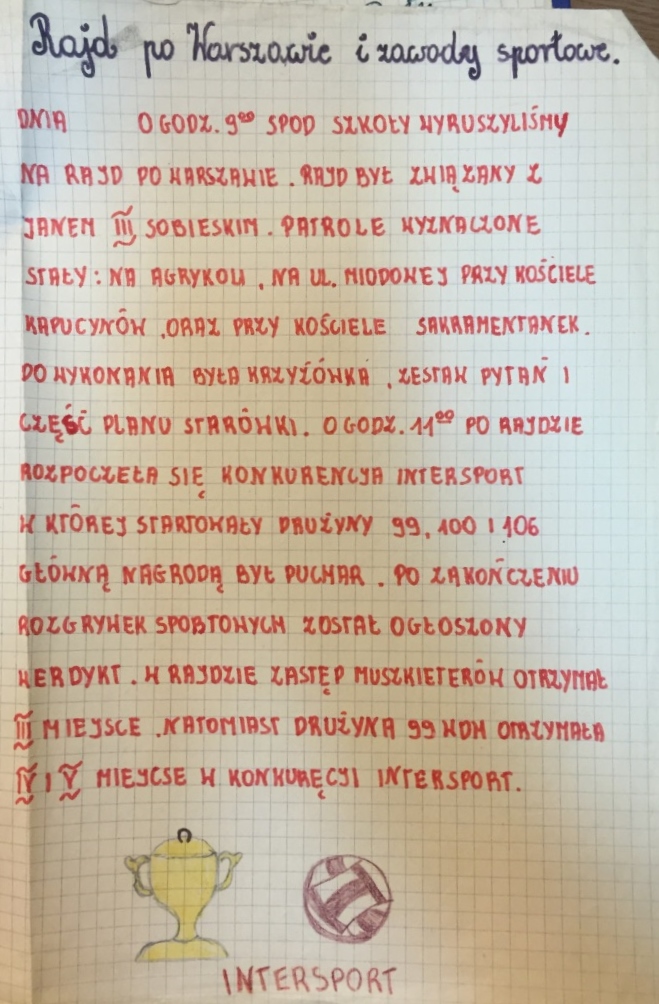 Rajd po Warszawie i zawody sportowe.
DNIA O GODZ. 9⁰⁰ SPOD SZKOŁY WYRUSZYLIŚMY
NA RAJD PO WARSZAWIE. RAJD BYŁ ZWIĄZANY Z
JANEM III SOBIESKIM. PATROLE WYZNACZONE
STAŁY: NA AGRYKOLI, NA UL. MIODOWEJ PRZY KOŚCIELE
KAPUCYNÓW, ORAZ PRZY KOŚCIELE SAKRAMENTANEK.
DO WYKONANIA BYŁA KRZYŻÓWKA, ZESTAW PYTAŃ I
CZĘŚĆ PLANU STARÓWKI. O GODZ. 11⁰⁰ PO RAJDZIE
ROZPOCZEŁA SIĘ KONKURENCJA INTERSPORT
W KTÓREJ STARTOWAŁY DRUŻYNY 99, 100 I 106
GŁÓWNĄ NAGRODĄ BYŁ PUCHAR. PO ZAKOŃCZENIU
ROZGRYWEK SPOBTOWYCH ZOSTAŁ OGŁOSZONY
WERDYKT. W RAJDZIE ZASTĘP MUSZKIETERÓW OTRZYMAŁ
III MIEJSCE. NATOMIAST DRUŻYNA 99 WDH OTRZYMAŁA
IV I V MIEJCSE W KONKURĘCJI INTERSPORT.
INTERSPORT